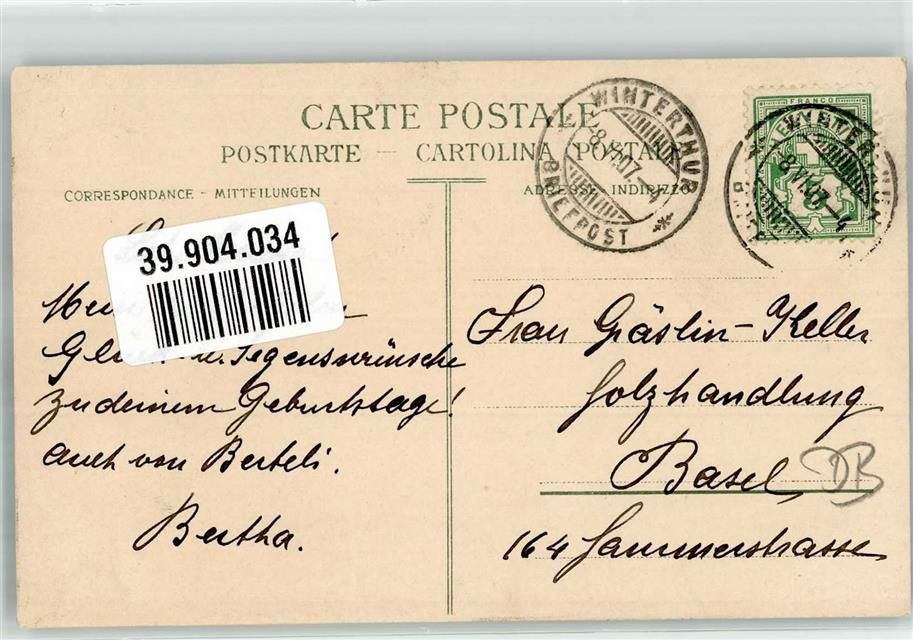 CARTE POSTALE
POSTKARTE — CARTOLINA POSTALE
CORRESPONDANCE - MITTEILUNGEN
ADRESSE - INDIRIZZO
WINTERTHUR
-8.VI.07.
BRIEFPOST
FRANCO
39.904.034
Glück- u. Segenswünsche
zu deinem Geburtstage!
auch von Berteli.
Bertha.
Frau Gräslin-Keller
Holzhandlung
Basel
164 Hammerstrasse
DB